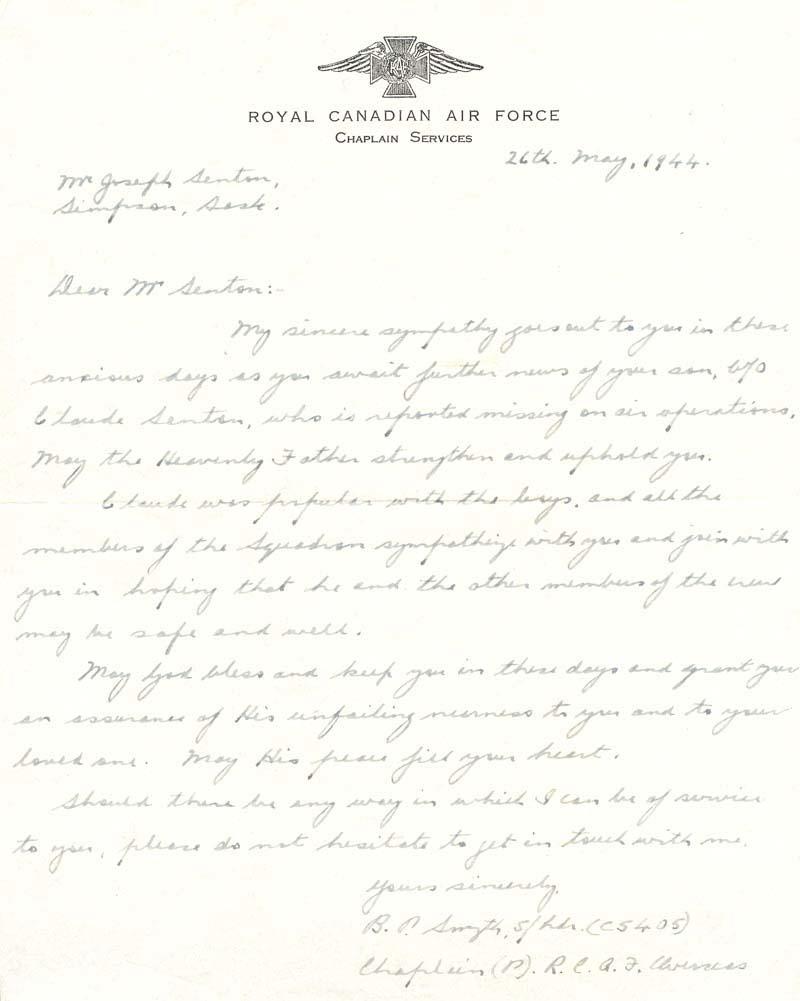 ROYAL CANADIAN AIR FORCE
CHAPLAIN SERVICES
26th. May, 1944.
Mr Joseph Senton,
Simpson, Sask.
Dear Mr Senton:-
My sincere sympathy goes out to you in these
anxious days as you await further news of your son,
Claude Senton, who is reported missing on air operations.
May the Heavenly Father strengthen and uphold you.
Claude was popular with the boys, and all the
members of the Squadron sympathize with you and join with
you in hoping that he and the other members of the crew
may be safe and well.
May God bless and keep you in these days and grant you
an assurance of His unfailing nearness to you and to your
loved one. May His peace fill your heart.
Should there be any way in which I can be of service
to you, please do not hesitate to get in touch with me.
Yours sincerely,
B. P. Smyth, S/Ldr. (C5405)
Chaplain (P). R. C. A. F. Overseas